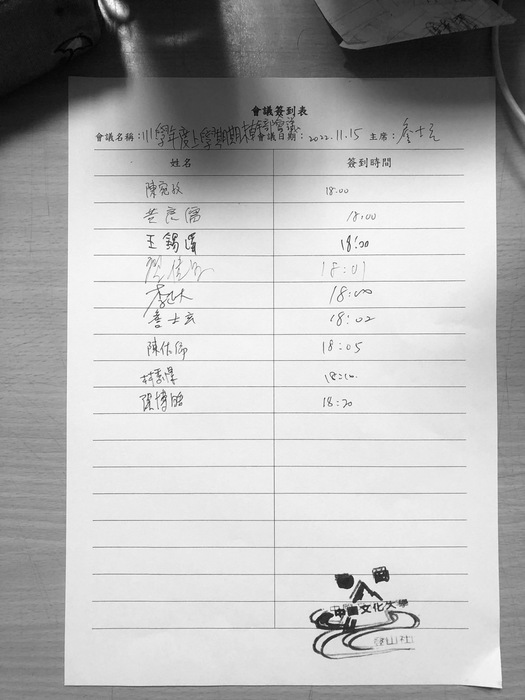 會議簽到表
會議名稱：111學年度上學期期末幹部會議 會議日期：2022.11.15 主席：詹士玄
姓名 簽到時間
陳宛玫 18:00
黃良儒 18:00
王錫 18:00
18:01
李 18:00
詹士玄 18:02
陳佑 18:05
林 18:10
陳博 18:20
中國文化大學
登山社